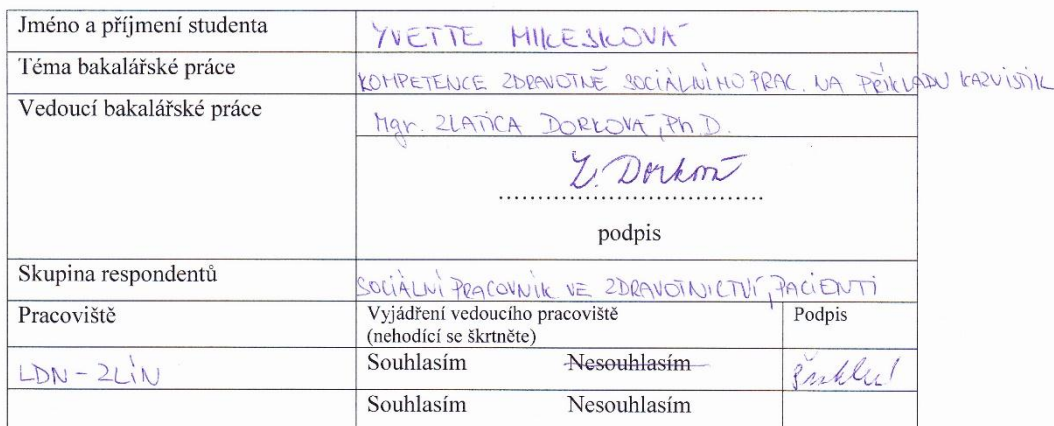 Jméno a příjmení studenta YVETTE MIKESKOVÁ
Téma bakalářské práce KOMPETENCE ZDRAVOTNĚ SOCIÁLNÍHO PRAC. NA PŘÍKLADU KAZUISTIK
Vedoucí bakalářské práce Mgr. ZLATICA DORKOVÁ, Ph.D.
Z. Dorková
..................................
podpis
Skupina respondentů SOCIÁLNÍ PRACOVNÍK VE ZDRAVOTNICTVÍ, PACIENTI
Pracoviště Vyjádření vedoucího pracoviště Podpis
(nehodící se škrtněte)
LDN - ZLÍN Souhlasím Nesouhlasím
Souhlasím Nesouhlasím